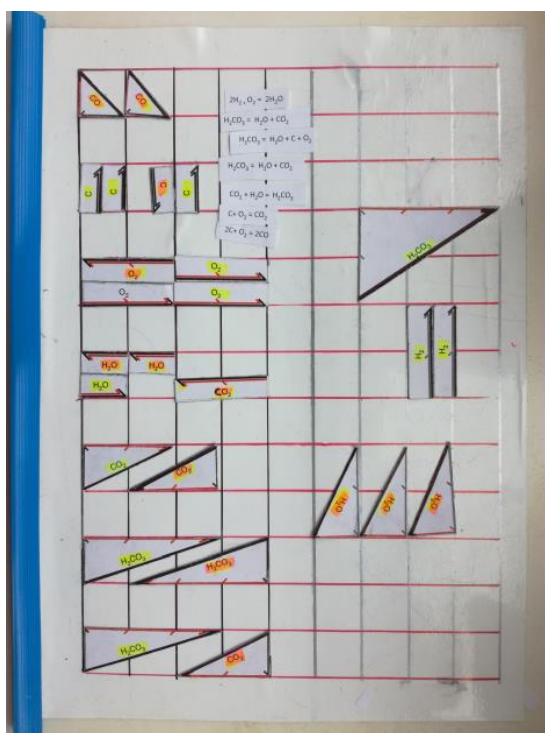 CO CO
2H₂ + O₂ = 2H₂O
H₂CO₃ = H₂O + CO₂
H₂CO₃ = H₂O + C + O₂
H₂CO₃ = H₂O + CO₂
CO₂ + H₂O = H₂CO₃
C + O₂ = CO₂
2C + O₂ = 2CO
C C C C
H₂CO₃
O₂ O₂
O₂ O₂
H₂ H₂
H₂O H₂O
H₂O CO₂
CO₂ CO₂
H₂O H₂O H₂O
H₂CO₃ H₂CO₃
H₂CO₃ CO₂